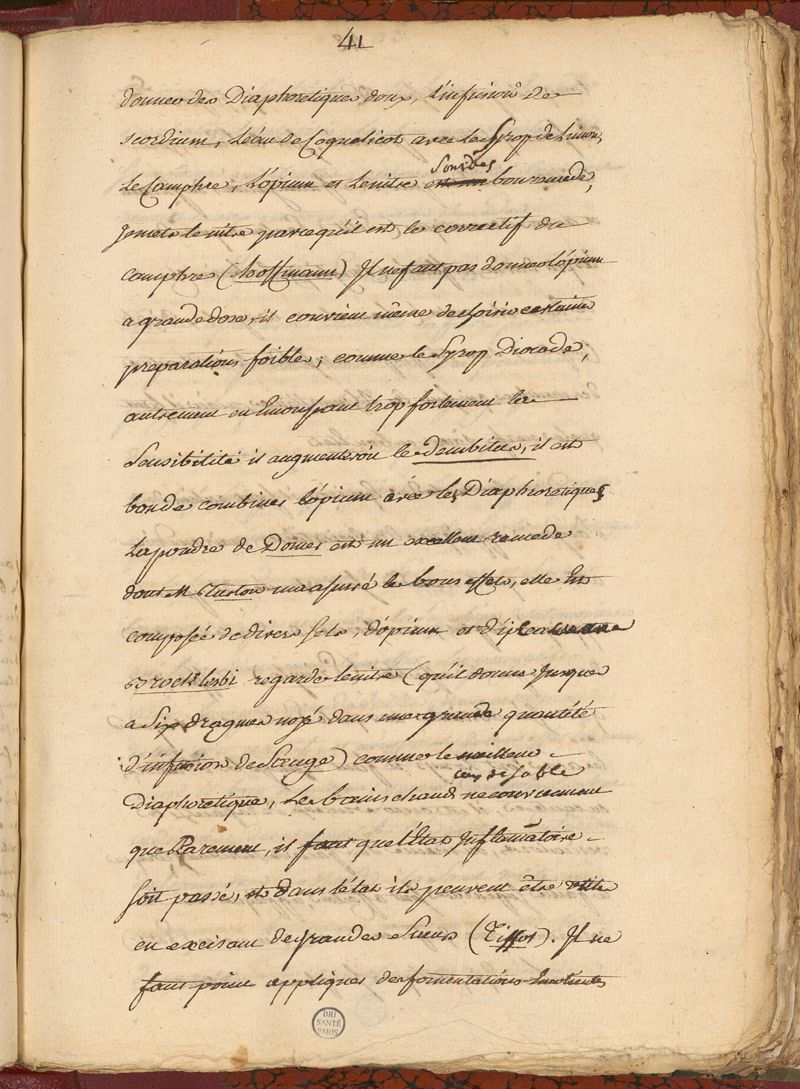 41
donner des Diaphoretiques doux, L'infusion de
scordium, L'eau de Coquelicot avec le Syrop de Limon,
Le Camphre, L'opium et Le nitre sont des bon remede,
Jomets le nitre parcequ'il est le correctif du
camphre (hoffmann) Il ne faut pas donner lópium
a grande dose, il convient même de choisir certaine
preparations foible, comme le Syrop Diacode,
autrement en Emoussant trop fortement la
Sensibilité il augmenteroit le decubitus, il est
bon de combiner lópium avec les Diaphoretiques
La poudre de Dower est un excellent remede
dont M m'a assuré le bons effets, elle Est
composée de divers sels, d'opium et d'ipeca
Brocklesbi regarde le nitre (qu'il donne Jusques
a Six dragmes noyé dans une grande quantité
d'infusion de Sauge) comme le meilleur
Diaphoretique, Les bains chauds ne conviennent
que Rarement, il faut que l'Etat Inflammatoire
soit passé, et dans l'état ils peuvent être utile
en excitant de grandes Sueurs (Tissot). Il ne
faut point appliquer des fomentations
BIU SANTÉ PARIS